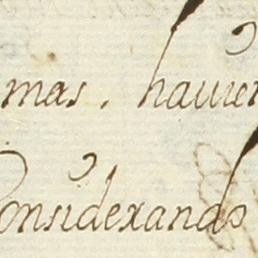 mas. hauien
Considerando